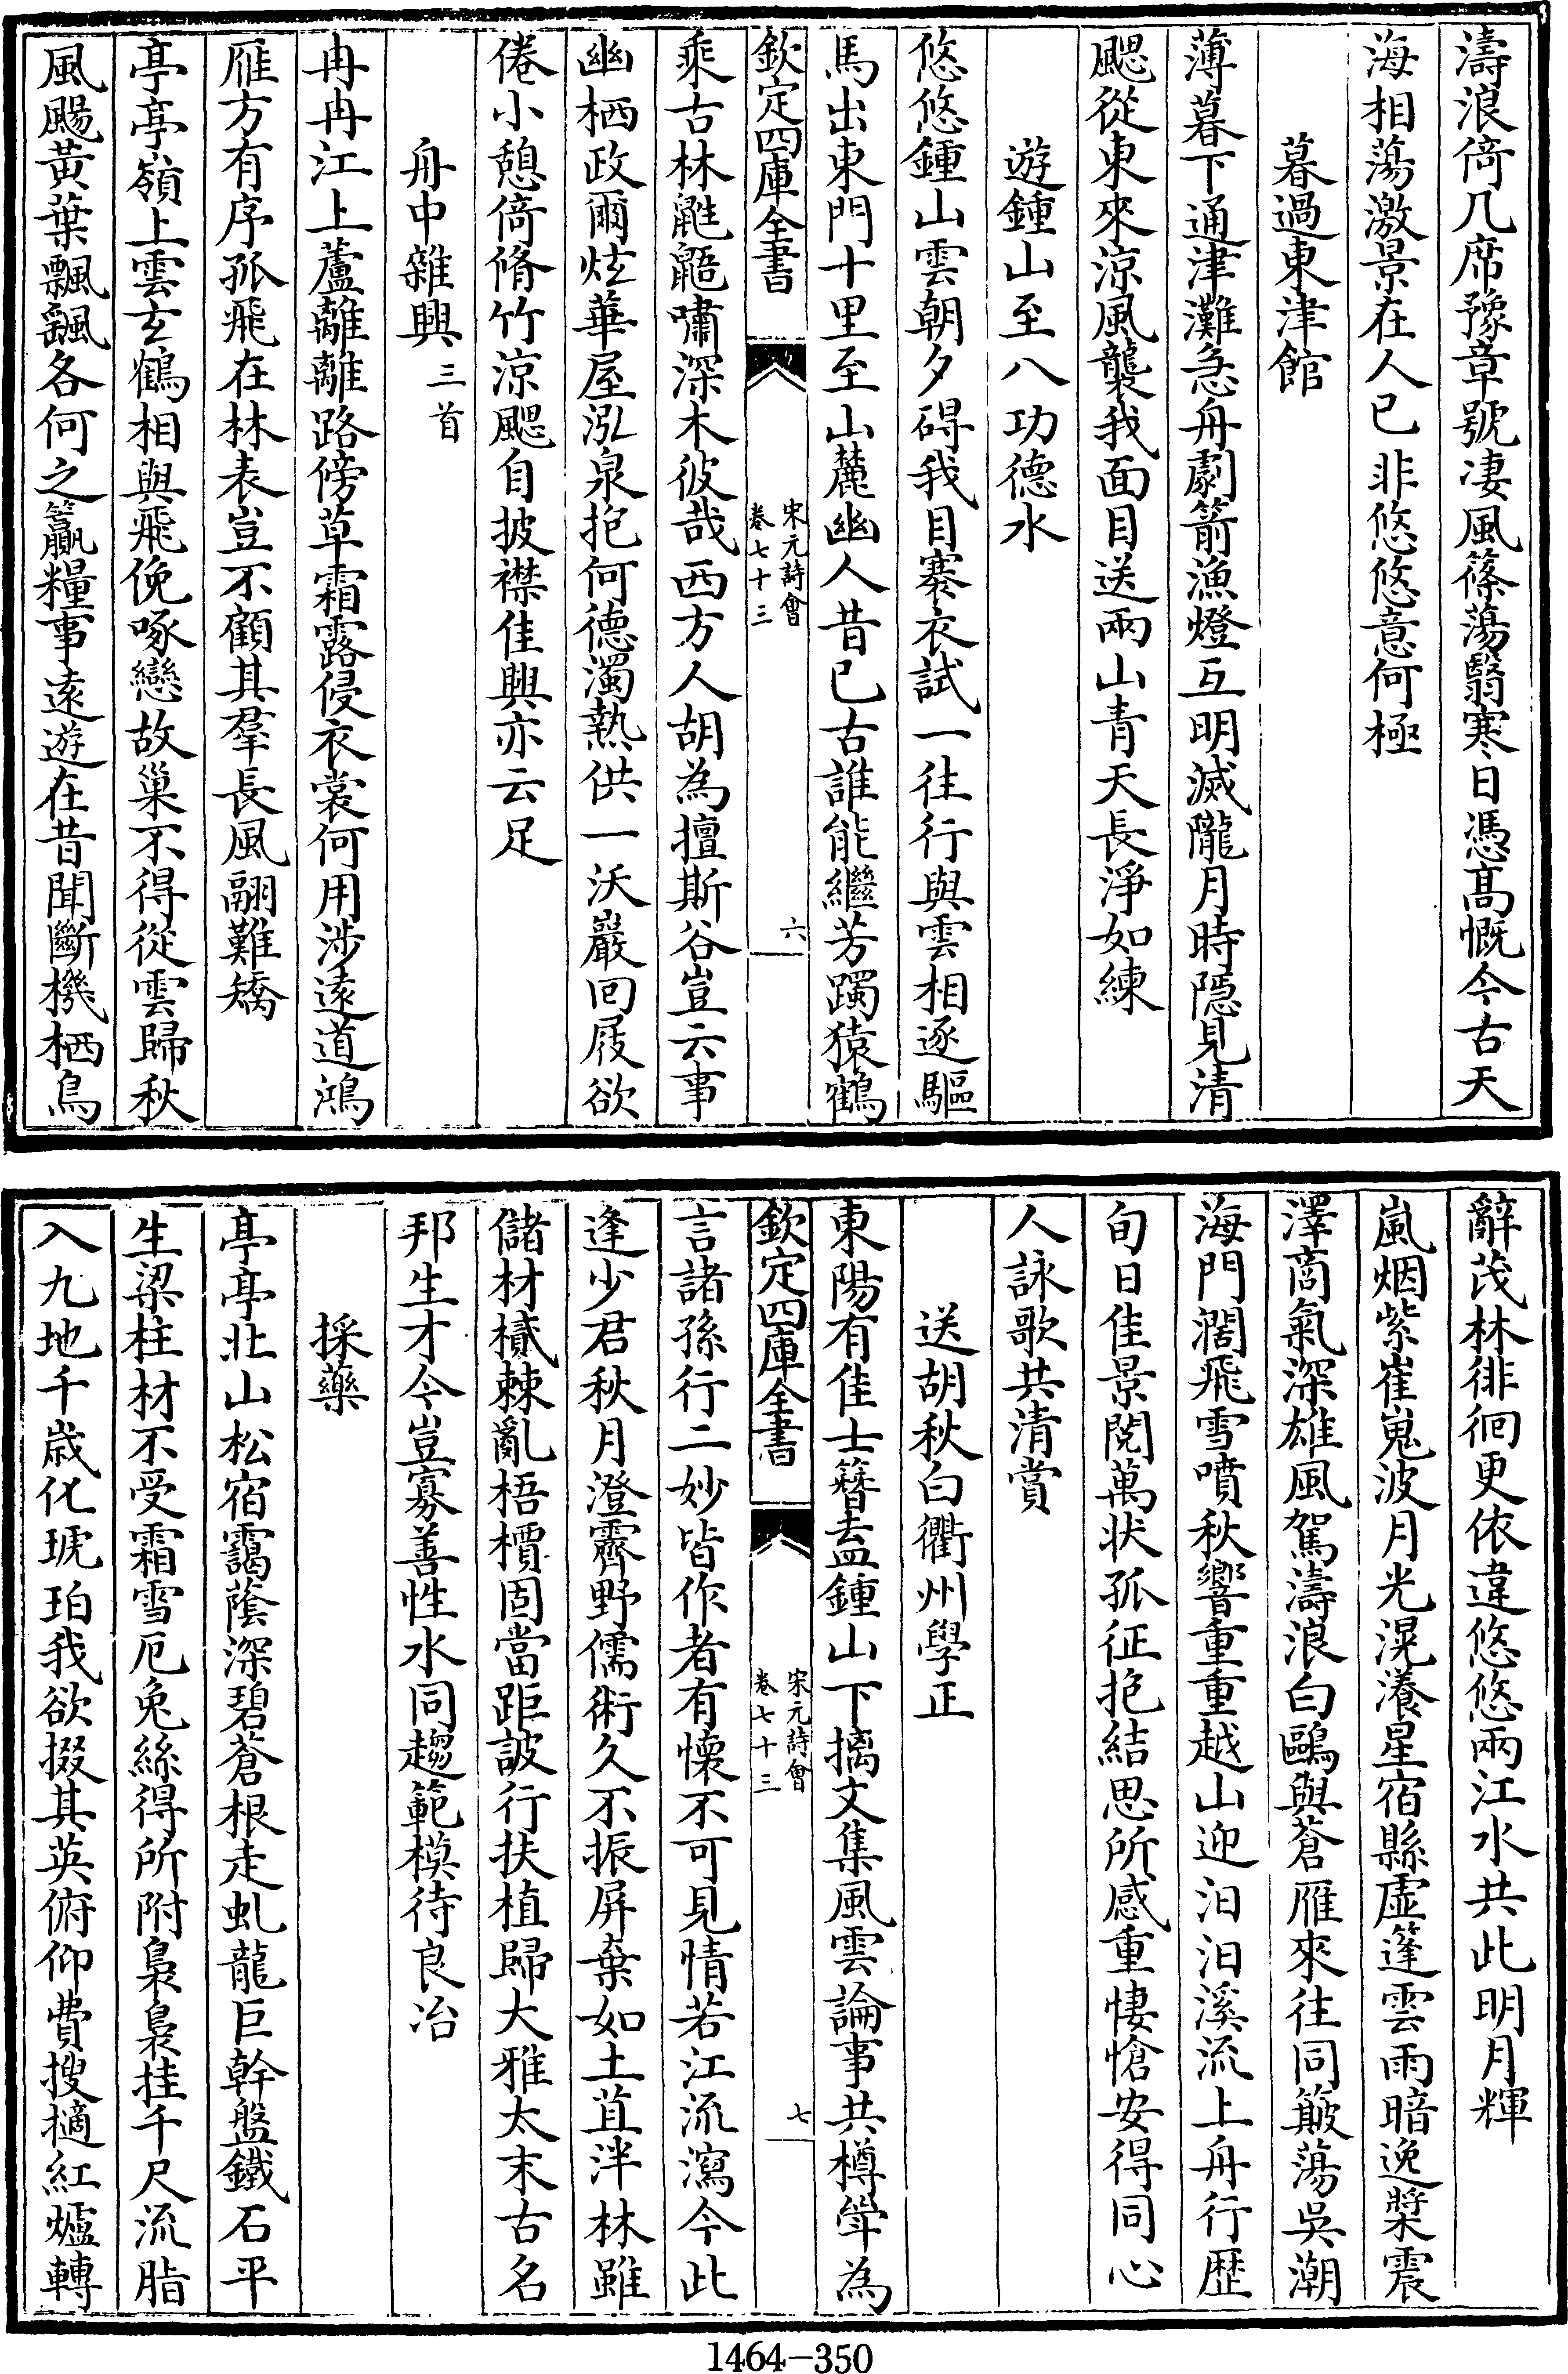 濤浪倚几席豫章號凄風篠蕩翳寒日憑髙慨今古天
海相蕩激景在人已非悠悠意何極
暮過東津館
薄暮下通津灘急舟劇箭漁燈互明滅隴月時隠見清
颸從東來涼風襲我面目送兩山青天長淨如練
遊鍾山至八功德水
悠悠鍾山雲朝夕碍我目褰衣試一往行與雲相逐驅
馬出東門十里至山麓幽人昔已古誰能繼芳躅猿鶴
欽定四庫全書
宋元詩會
卷七十三
六
乘古林鼪鼯嘯深木彼哉西方人胡為擅斯谷豈云事
幽栖政爾炫華屋泓泉抱何德濁熱供一沃巖回屐欲
倦小憩倚脩竹涼颸自披襟佳興亦云足
舟中雜興三首
冉冉江上蘆離離路傍草霜露侵衣裳何用涉遠道鴻
雁方有序孤飛在林表豈不顧其羣長風翮難矯
亭亭嶺上雲玄鶴相與飛俛啄戀故巢不得從雲歸秋
風颺黃葉飄飄各何之贏糧事遠遊在昔聞斷機栖鳥
辭茂林徘徊更依違悠悠兩江水共此明月輝
嵐烟紫崔嵬波月光滉瀁星宿縣虛篷雲雨暗逸槳震
澤商氣深雄風駕濤浪白鷗與蒼雁來往同簸蕩吳潮
海門濶飛雪噴秋響重重越山迎汩汩溪流上舟行歴
旬日佳景閱萬状孤征抱結思所感重悽愴安得同心
人詠歌共清賞
送胡秋白衢州學正
東陽有佳士簪盍鍾山下摛文集風雲論事共樽斝為
欽定四庫全書
宋元詩會
卷七十三
七
言諸孫行二妙皆作者有懷不可見情若江流瀉今此
逢少君秋月澄霽野儒術久不振屏棄如土苴泮林雖
儲材樲棘亂梧檟固當距詖行扶植歸大雅太末古名
邦生才今豈寡善性水同趨範模待良冶
採藥
亭亭北山松宿靄蔭深碧蒼根走虬龍巨幹盤鐵石平
生梁柱材不受霜雪厄兔絲得所附裊裊挂千尺流脂
入九地千歳化琥珀我欲掇其英俯仰費搜擿紅爐轉
1464-350